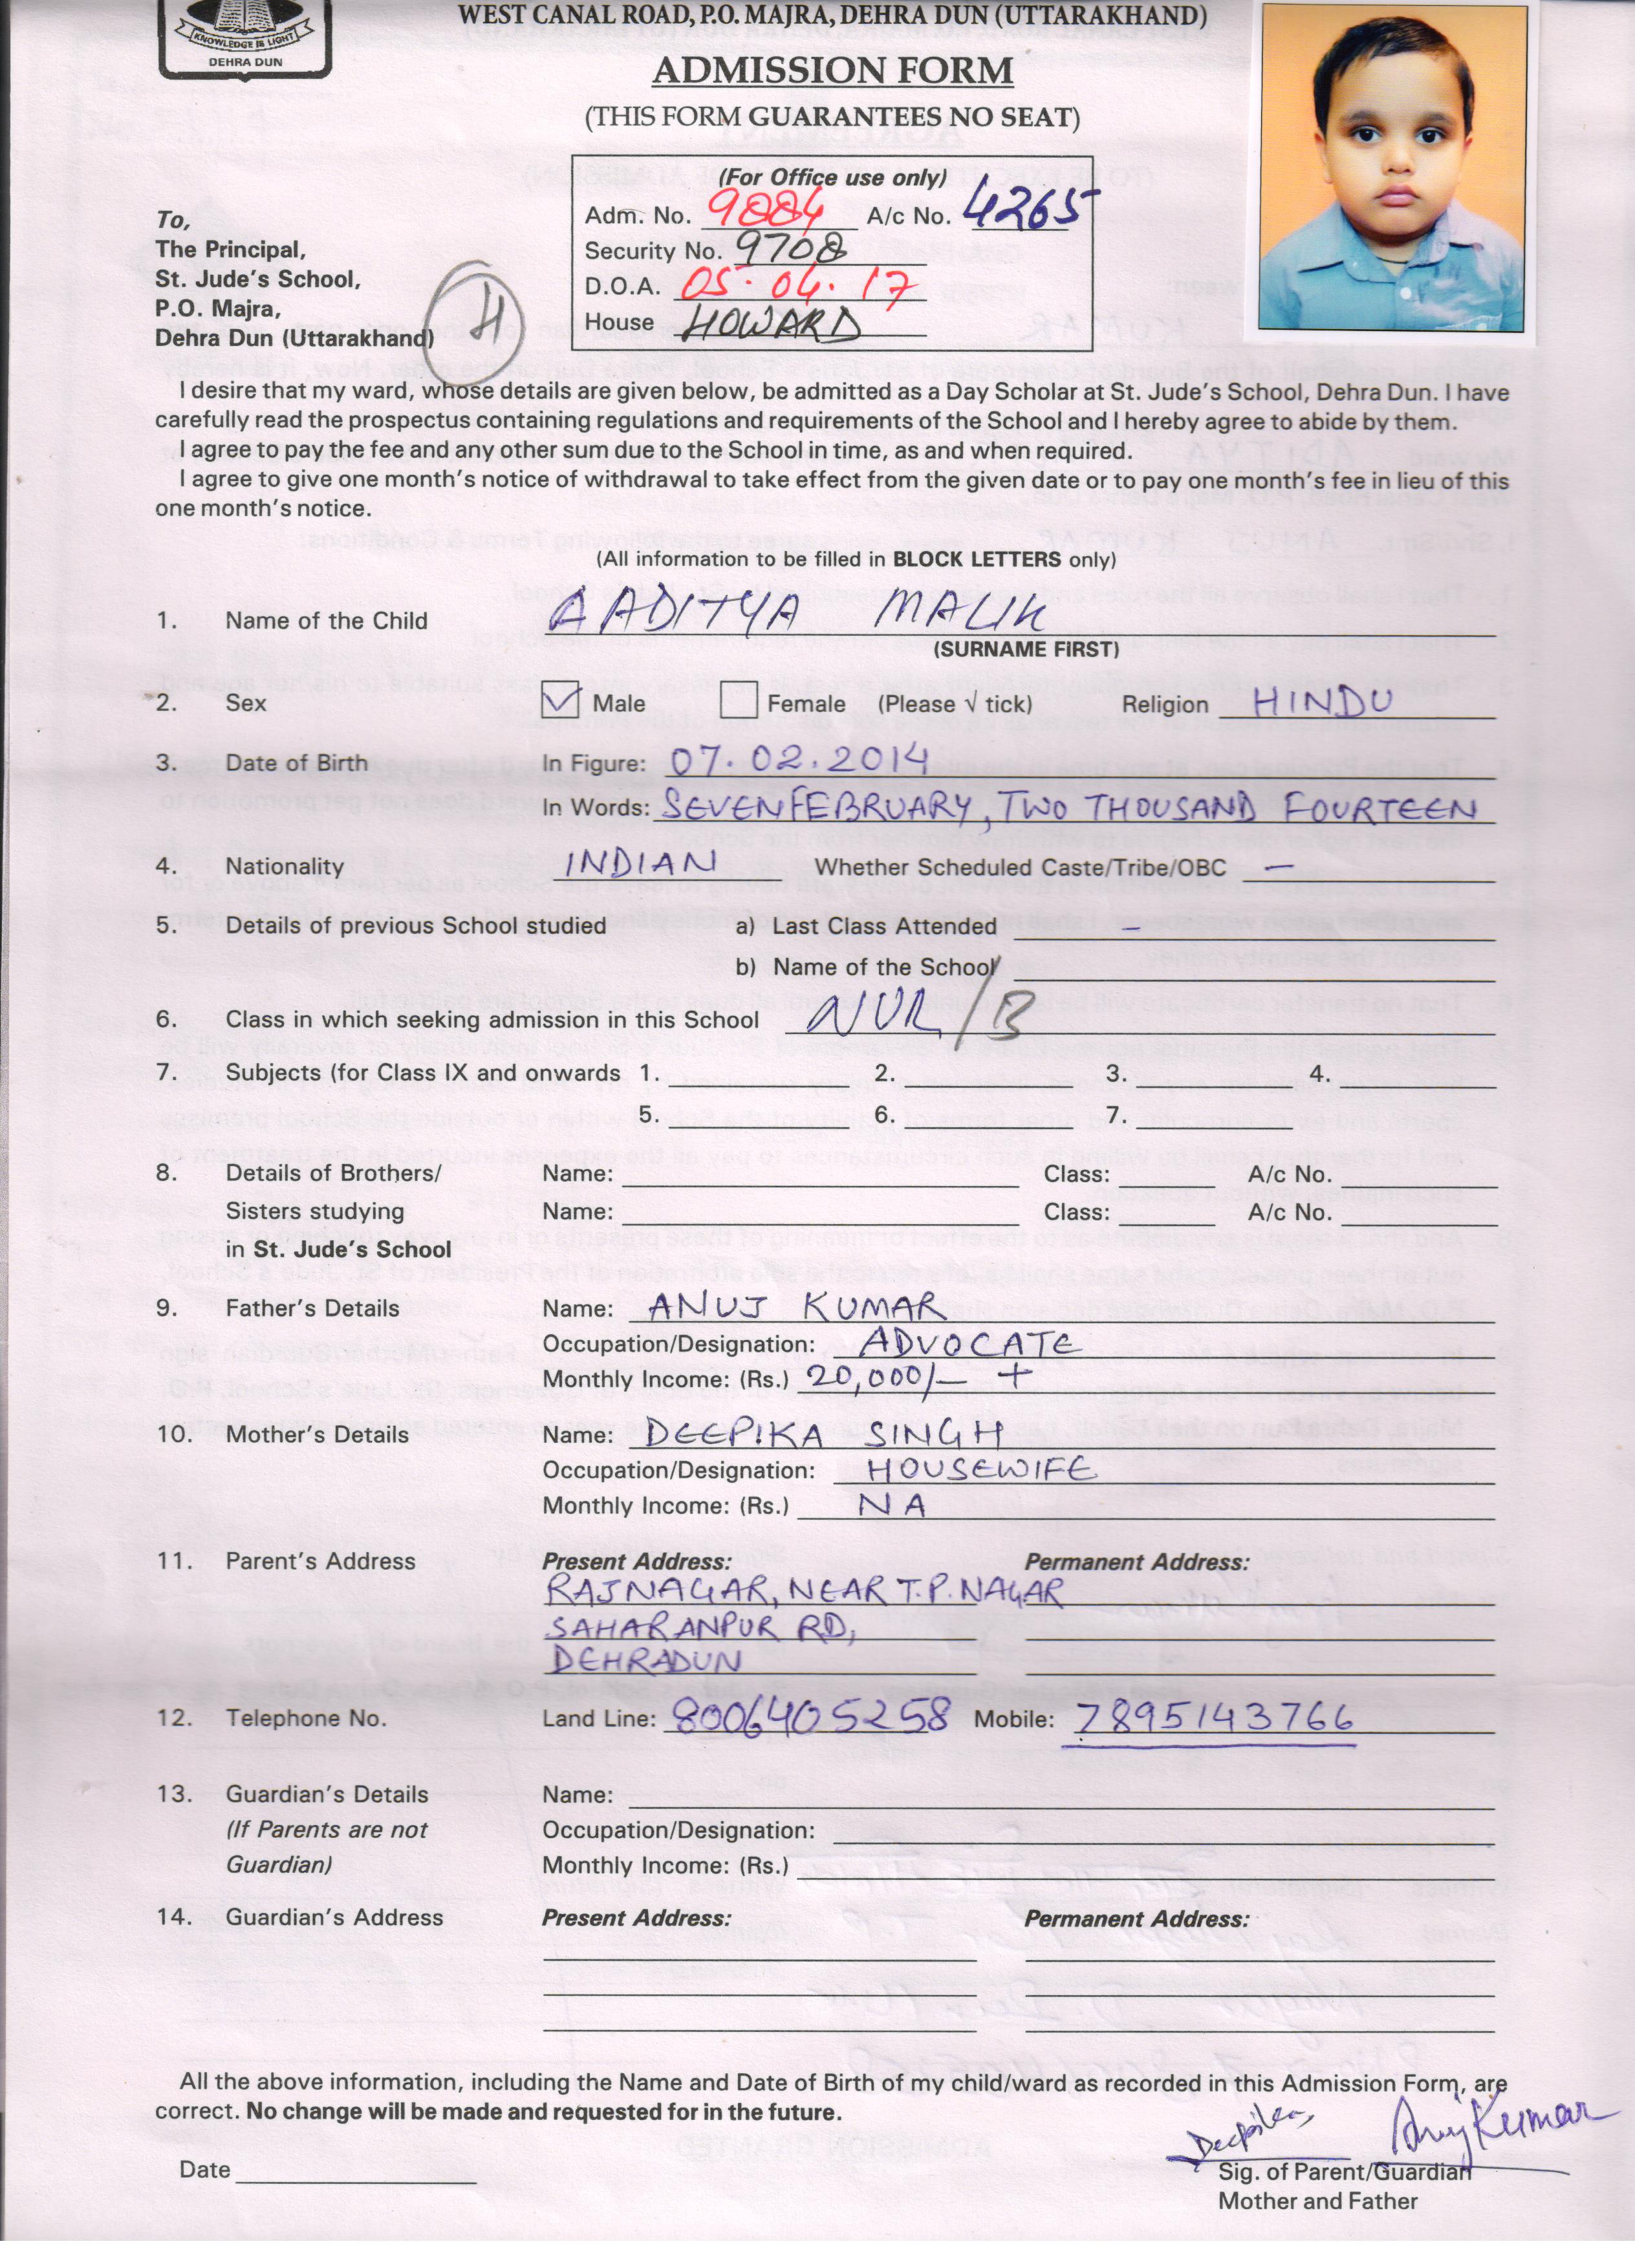 KNOWLEDGE IS LIGHT
DEHRA DUN
WEST CANAL ROAD, P.O. MAJRA, DEHRA DUN (UTTARAKHAND)
ADMISSION FORM
(THIS FORM GUARANTEES NO SEAT)
(For Office use only)
Adm. No. 9084 A/c No. 4265
Security No. 9708
D.O.A. 05.04.17
House HOWARD
To,
The Principal,
St. Jude's School,
P.O. Majra,
Dehra Dun (Uttarakhand)
H
I desire that my ward, whose details are given below, be admitted as a Day Scholar at St. Jude's School, Dehra Dun. I have
carefully read the prospectus containing regulations and requirements of the School and I hereby agree to abide by them.
I agree to pay the fee and any other sum due to the School in time, as and when required.
I agree to give one month's notice of withdrawal to take effect from the given date or to pay one month's fee in lieu of this
one month's notice.
(All information to be filled in BLOCK LETTERS only)
1. Name of the Child AADITYA MALIK
(SURNAME FIRST)
2. Sex ✓ Male Female (Please √ tick) Religion HINDU
3. Date of Birth In Figure: 07.02.2014
In Words: SEVEN FEBRUARY, TWO THOUSAND FOURTEEN
4. Nationality INDIAN Whether Scheduled Caste/Tribe/OBC —
5. Details of previous School studied a) Last Class Attended —
b) Name of the School
6. Class in which seeking admission in this School NUR/B
7. Subjects (for Class IX and onwards 1. 2. 3. 4.
5. 6. 7.
8. Details of Brothers/ Name: Class: A/c No.
Sisters studying Name: Class: A/c No.
in St. Jude's School
9. Father's Details Name: ANUJ KUMAR
Occupation/Designation: ADVOCATE
Monthly Income: (Rs.) 20,000/— +
10. Mother's Details Name: DEEPIKA SINGH
Occupation/Designation: HOUSEWIFE
Monthly Income: (Rs.) NA
11. Parent's Address Present Address: Permanent Address:
RAJNAGAR, NEAR T.P. NAGAR
SAHARANPUR RD,
DEHRADUN
12. Telephone No. Land Line: 8006405258 Mobile: 7895143766
13. Guardian's Details Name:
(If Parents are not Occupation/Designation:
Guardian) Monthly Income: (Rs.)
14. Guardian's Address Present Address: Permanent Address:
All the above information, including the Name and Date of Birth of my child/ward as recorded in this Admission Form, are
correct. No change will be made and requested for in the future.
Deepika Anuj Kumar
Date Sig. of Parent/Guardian
Mother and Father